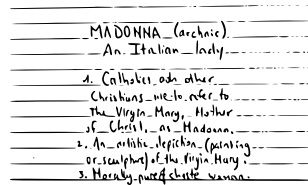 MADONNA (archaic)
An Italian lady
1. Catholics and other
Christians use to refer to
the Virgin Mary, Mother
of Christ, as Madonna.
2. An artistic depiction (painting
or sculpture) of the Virgin Mary.
3. Morally pure & chaste woman.